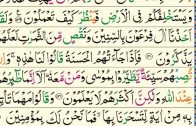 يَسْتَخْلِفَكُمْ فِي الْأَرْضِ فَيَنظُرَ كَيْفَ تَعْمَلُونَ
أَخَذْنَا آلَ فِرْعَوْنَ بِالسِّنِينَ وَنَقْصٍ مِّنَ الثَّمَرَاتِ لَعَلَّ
يَذَّكَّرُونَ فَإِذَا جَاءَتْهُمُ الْحَسَنَةُ قَالُوا لَنَا هَٰذِهِ وَ
تُصِبْهُمْ سَيِّئَةٌ يَطَّيَّرُوا بِمُوسَىٰ وَمَن مَّعَهُ أَلَا إِنَّمَا
عِندَ اللَّهِ وَلَٰكِنَّ أَكْثَرَهُمْ لَا يَعْلَمُونَ وَقَالُوا مَهْمَا تَأْ
بِهِ مِنْ آيَةٍ لِّتَسْحَرَنَا بِهَا فَمَا نَحْنُ لَكَ بِمُؤْمِنِينَ